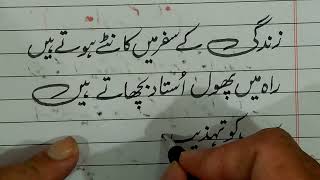 زندگی کے سفر میں کانٹے ہوتے ہیں
راہ میں پھول اُستاد بچھاتے ہیں
کو تہذیب